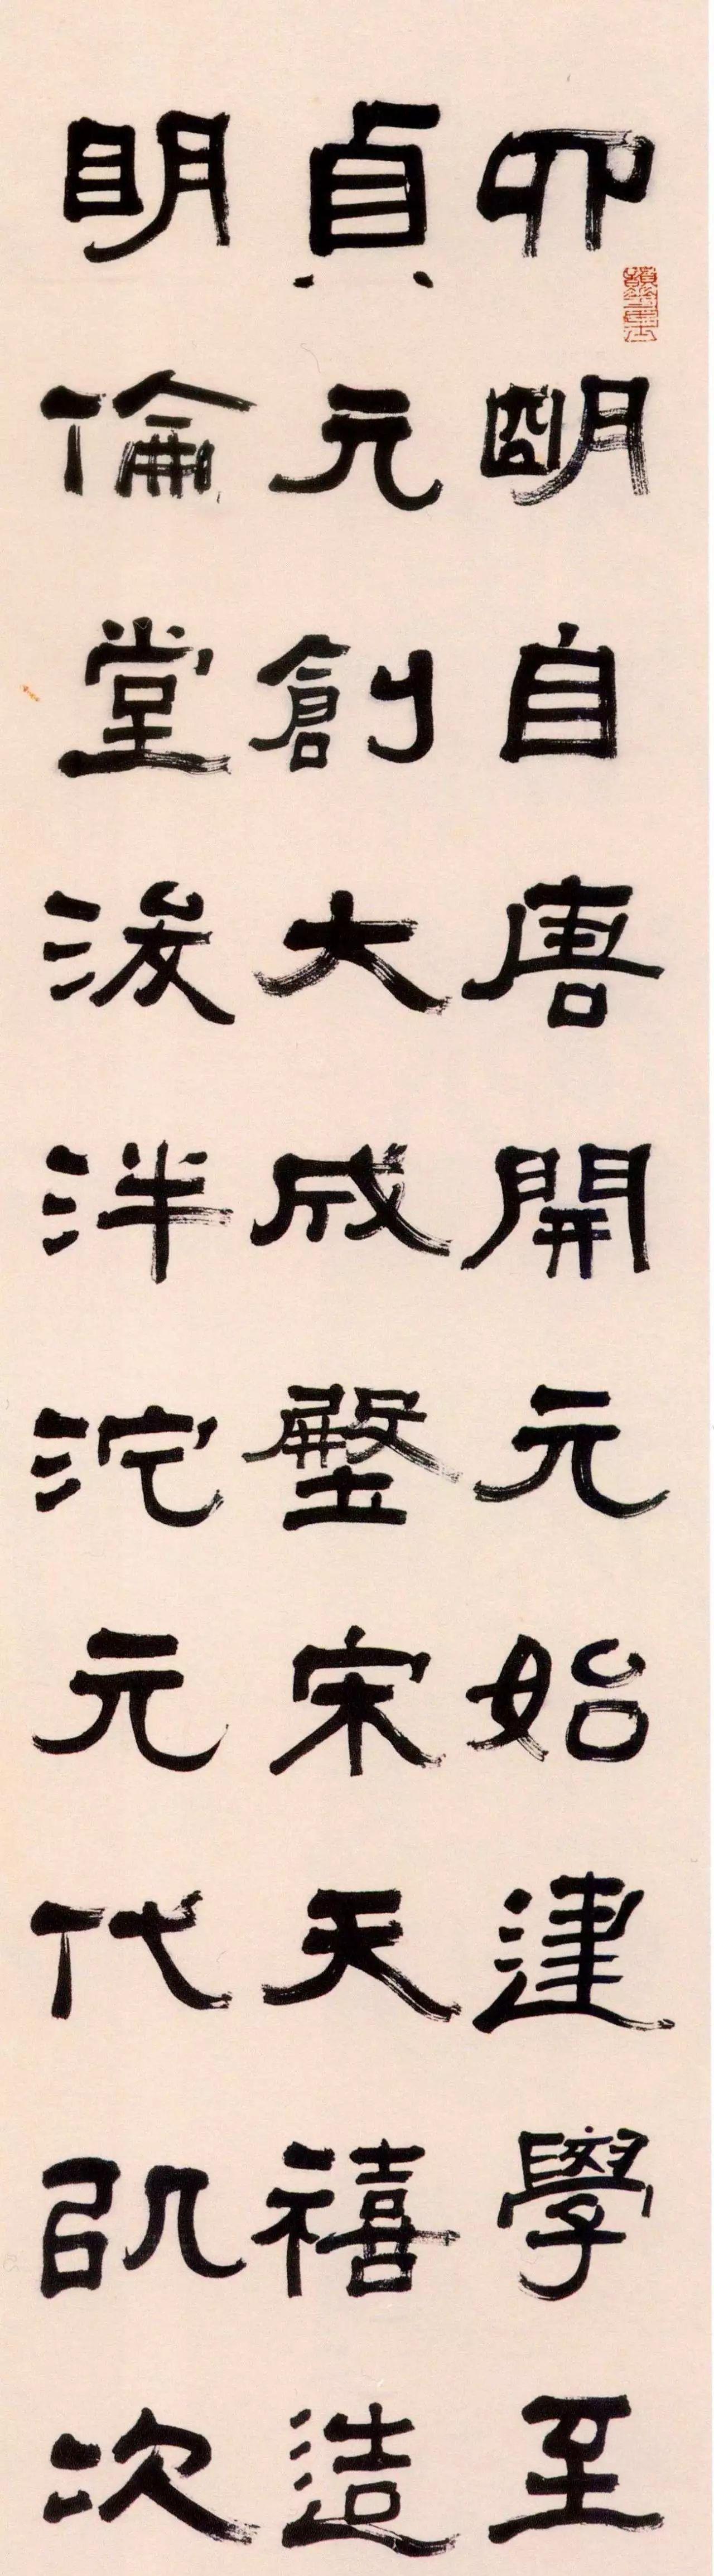 四明自唐開元始建學至
貞元創大成殿宋天禧造
明倫堂浚泮沱元代以次